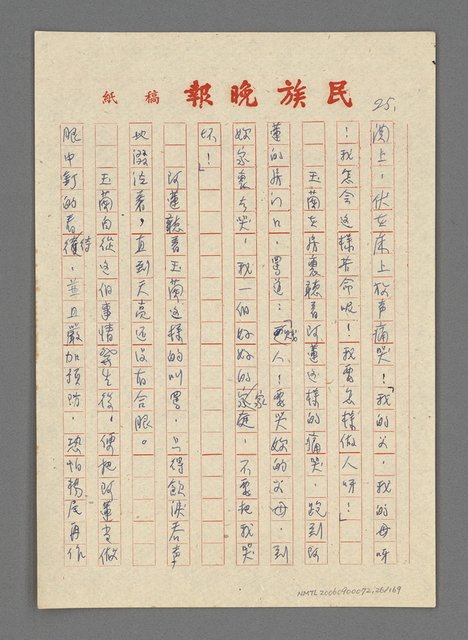 民族晚報 稿紙
25.
關上，伏在床上放聲痛哭！「我的父，我的母呀
！我怎會這樣苦命呢！我要怎樣做人呀！」
玉蘭在房裏聽着阿蓮這樣的痛哭，跑到阿
蓮的房門口，罵道：「賤人！要哭妳的父母，到
妳家裏去哭，我一個好好的家庭，不要把我哭
坏！」
阿蓮聽着玉蘭這樣的叫罵，只得飲淚吞聲
地啜泣着，直到天亮還沒有合眼。
玉蘭自從這個事情發生後，便把阿蓮當做
眼中釘的看待，並且嚴加預防，恐怕楊尾再作
NMTL20060900072,26/169